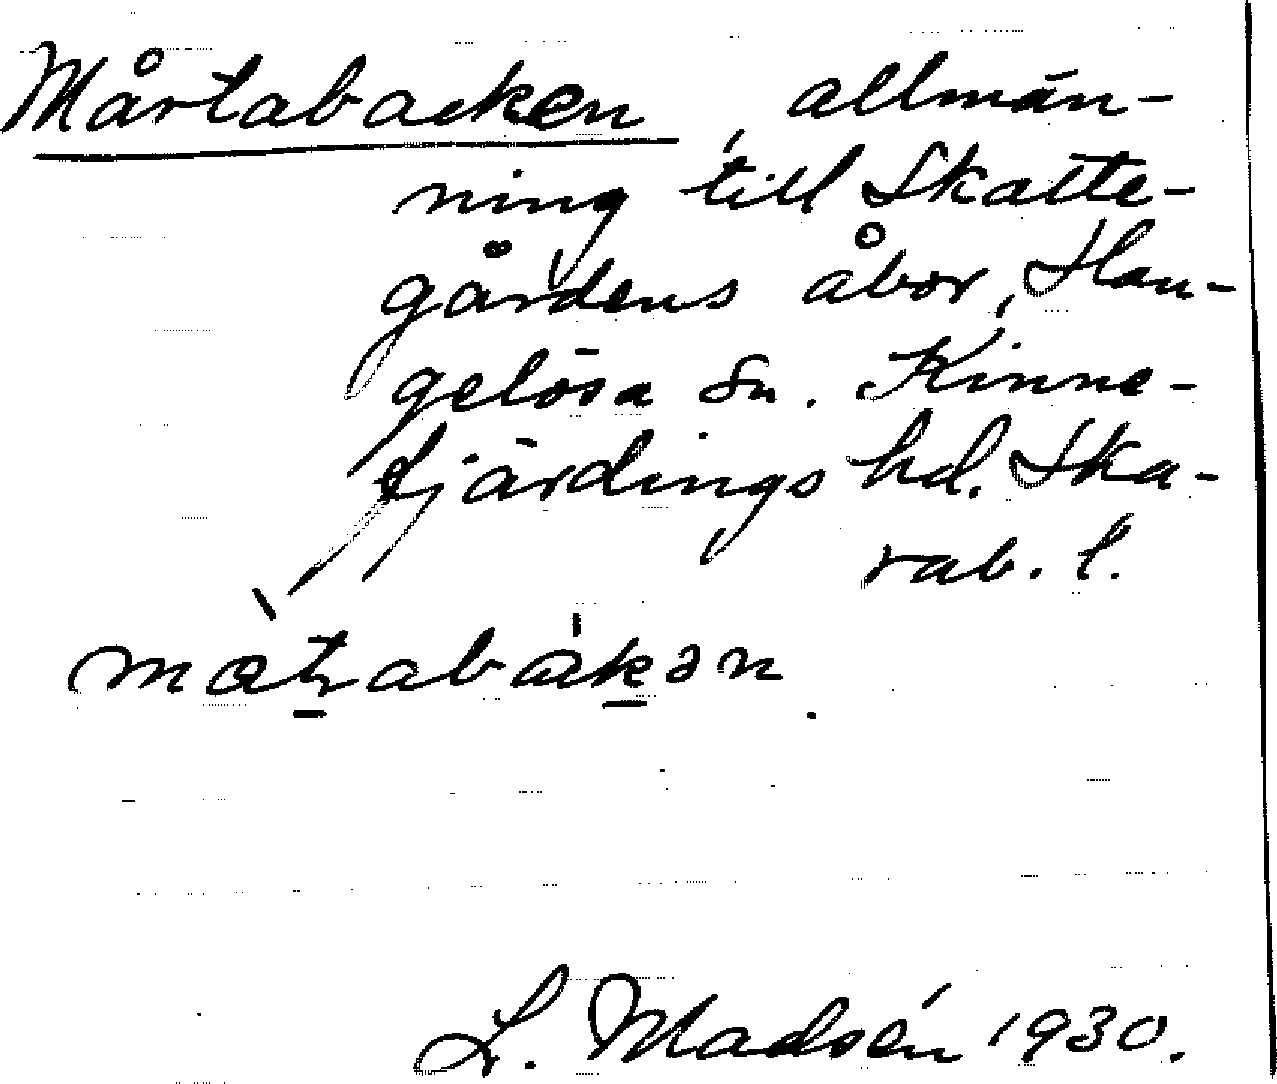 Mårtabacken, allmän-
ning till Skatte-
gårdens åbor, Han-
gelösa sn. Kinne-
fjärdings hd. Ska-
rab. l.
L. Madsén 1930.